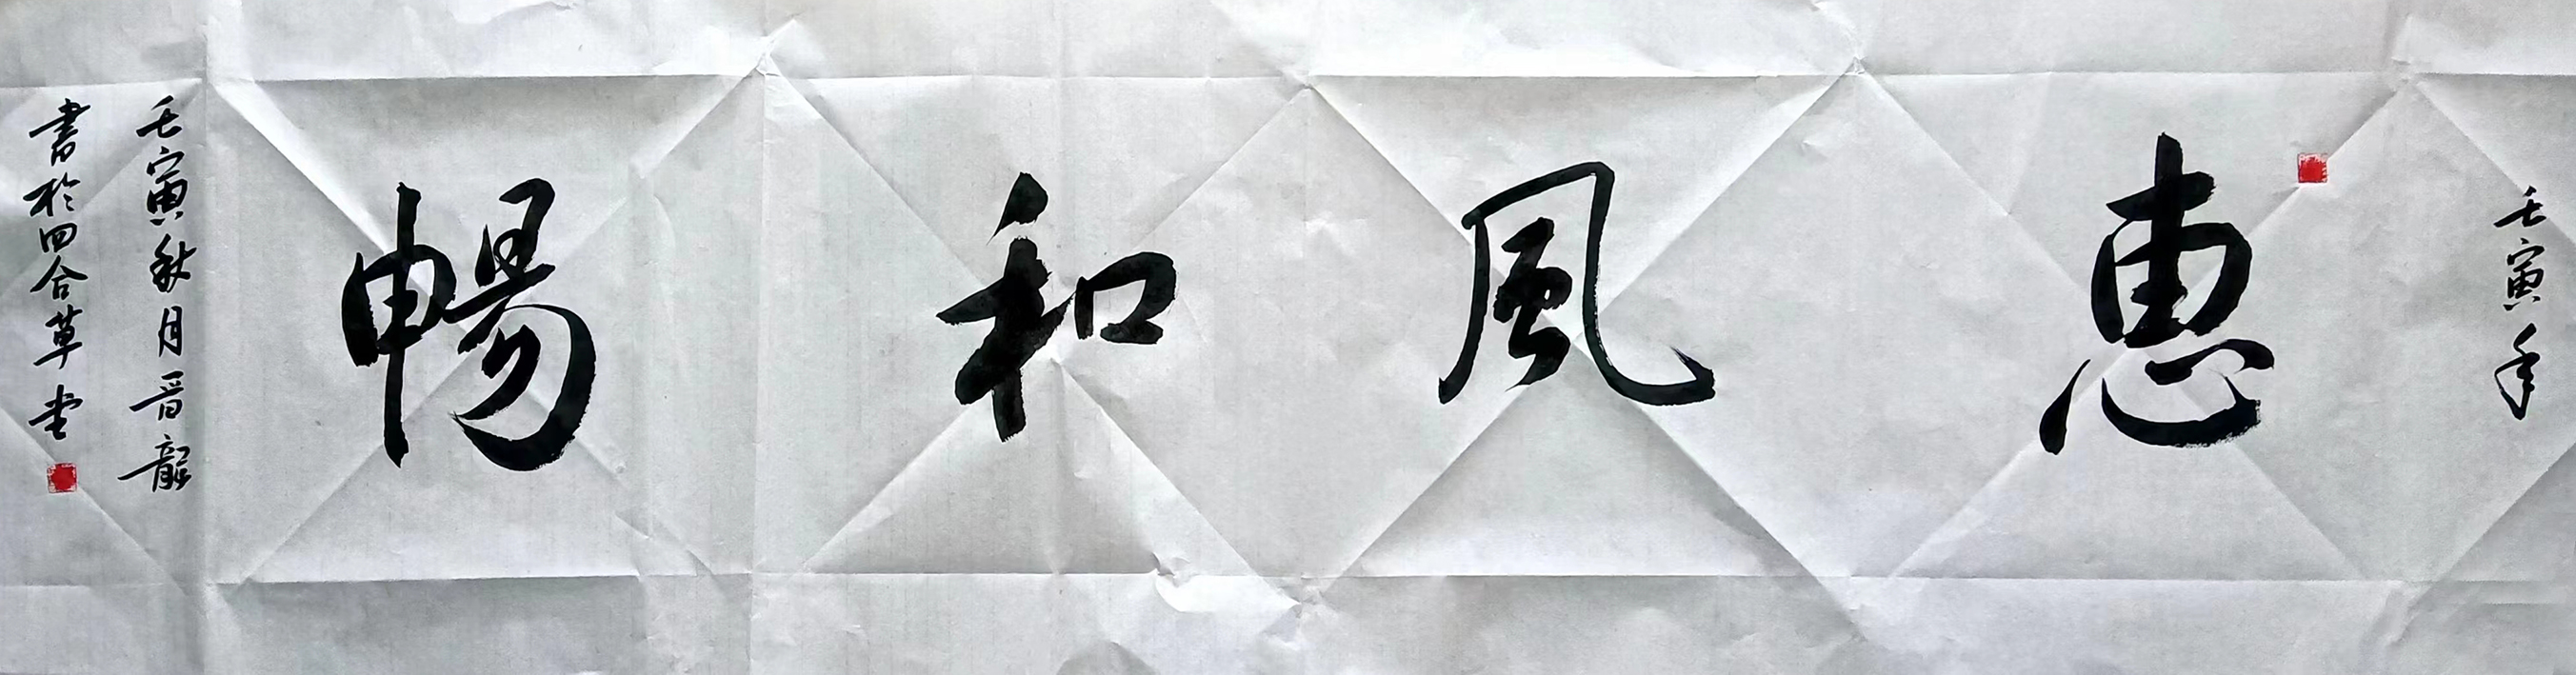 壬寅年
惠風和暢
壬寅秋月晋龍
書於四合草堂